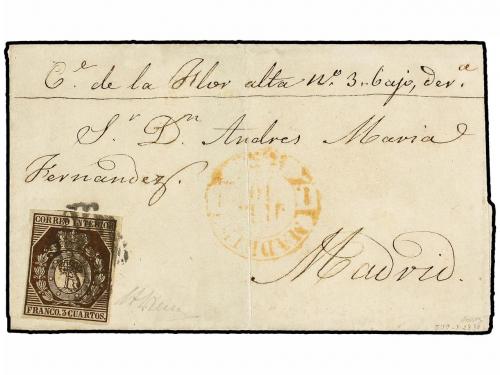 C.e de la Flor alta nº 3. bajo, der.a
S.r D.n Andres Maria
Fernandez.
MADRID
Madrid.
CORREO INTERIOR
FRANCO. 3 CUARTOS.